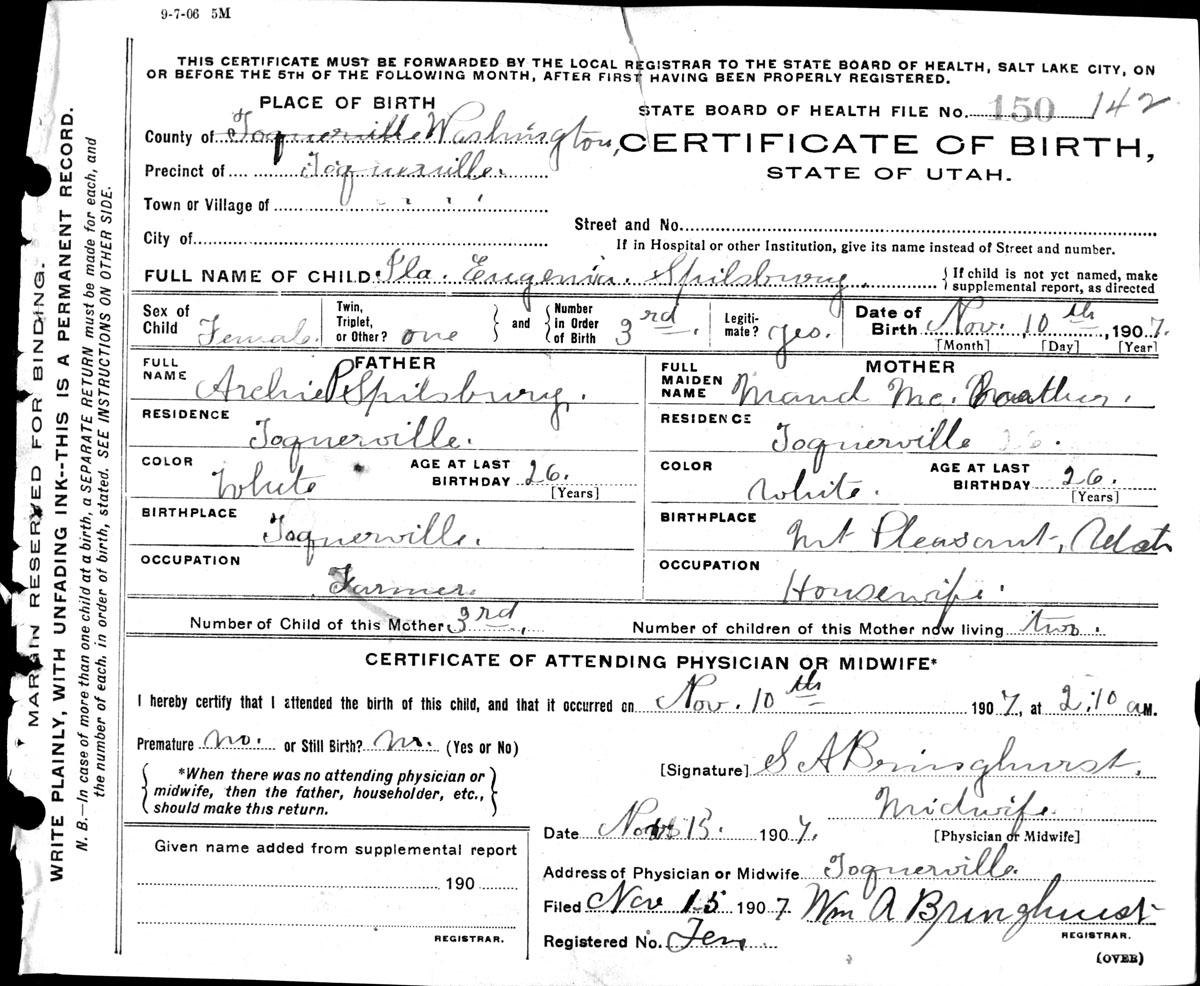 9-7-06 5M
THIS CERTIFICATE MUST BE FORWARDED BY THE LOCAL REGISTRAR TO THE STATE BOARD OF HEALTH, SALT LAKE CITY, ON
OR BEFORE THE 5TH OF THE FOLLOWING MONTH, AFTER FIRST HAVING BEEN PROPERLY REGISTERED.
PLACE OF BIRTH
STATE BOARD OF HEALTH FILE No. 150 142
County of Toquerville Washington,
CERTIFICATE OF BIRTH,
STATE OF UTAH.
Precinct of Toquerville.
Town or Village of " " "
Street and No.
City of
If in Hospital or other Institution, give its name instead of Street and number.
FULL NAME OF CHILD Ila. Eugenia. Spilsbury. { If child is not yet named, make
supplemental report, as directed
Sex of Child Female. Twin, Triplet, or Other? one } and { Number in Order of Birth 3rd. Legiti-mate? yes. Date of Birth Nov. 10th, 1907.
[Month] [Day] [Year]
FATHER
FULL NAME Archie P Spilsbury.
RESIDENCE Toquerville.
COLOR White AGE AT LAST BIRTHDAY 26. [Years]
BIRTHPLACE Toquerville.
OCCUPATION Farmer.
MOTHER
FULL MAIDEN NAME Maud Mc.
RESIDENCE Toquerville
COLOR White. AGE AT LAST BIRTHDAY 26. [Years]
BIRTHPLACE Mt Pleasant, Utah
OCCUPATION Housewife.
Number of Child of this Mother 3rd. Number of children of this Mother now living two.
CERTIFICATE OF ATTENDING PHYSICIAN OR MIDWIFE*
I hereby certify that I attended the birth of this child, and that it occurred on Nov. 10th 1907, at 2:10 a M.
Premature no. or Still Birth? no. (Yes or No)
*When there was no attending physician or
midwife, then the father, householder, etc.,
should make this return.
[Signature] S A Bringhurst.
Midwife.
[Physician or Midwife]
Date Nov 13. 1907.
Given name added from supplemental report
190
REGISTRAR.
Address of Physician or Midwife Toquerville.
Filed Nov 15 1907. Wm A Bringhurst
REGISTRAR.
Registered No. Ten
(OVER)
MARGIN RESERVED FOR BINDING.
WRITE PLAINLY, WITH UNFADING INK--THIS IS A PERMANENT RECORD.
N. B.—In case of more than one child at a birth, a SEPARATE RETURN must be made for each, and
the number of each, in order of birth, stated. SEE INSTRUCTIONS ON OTHER SIDE.